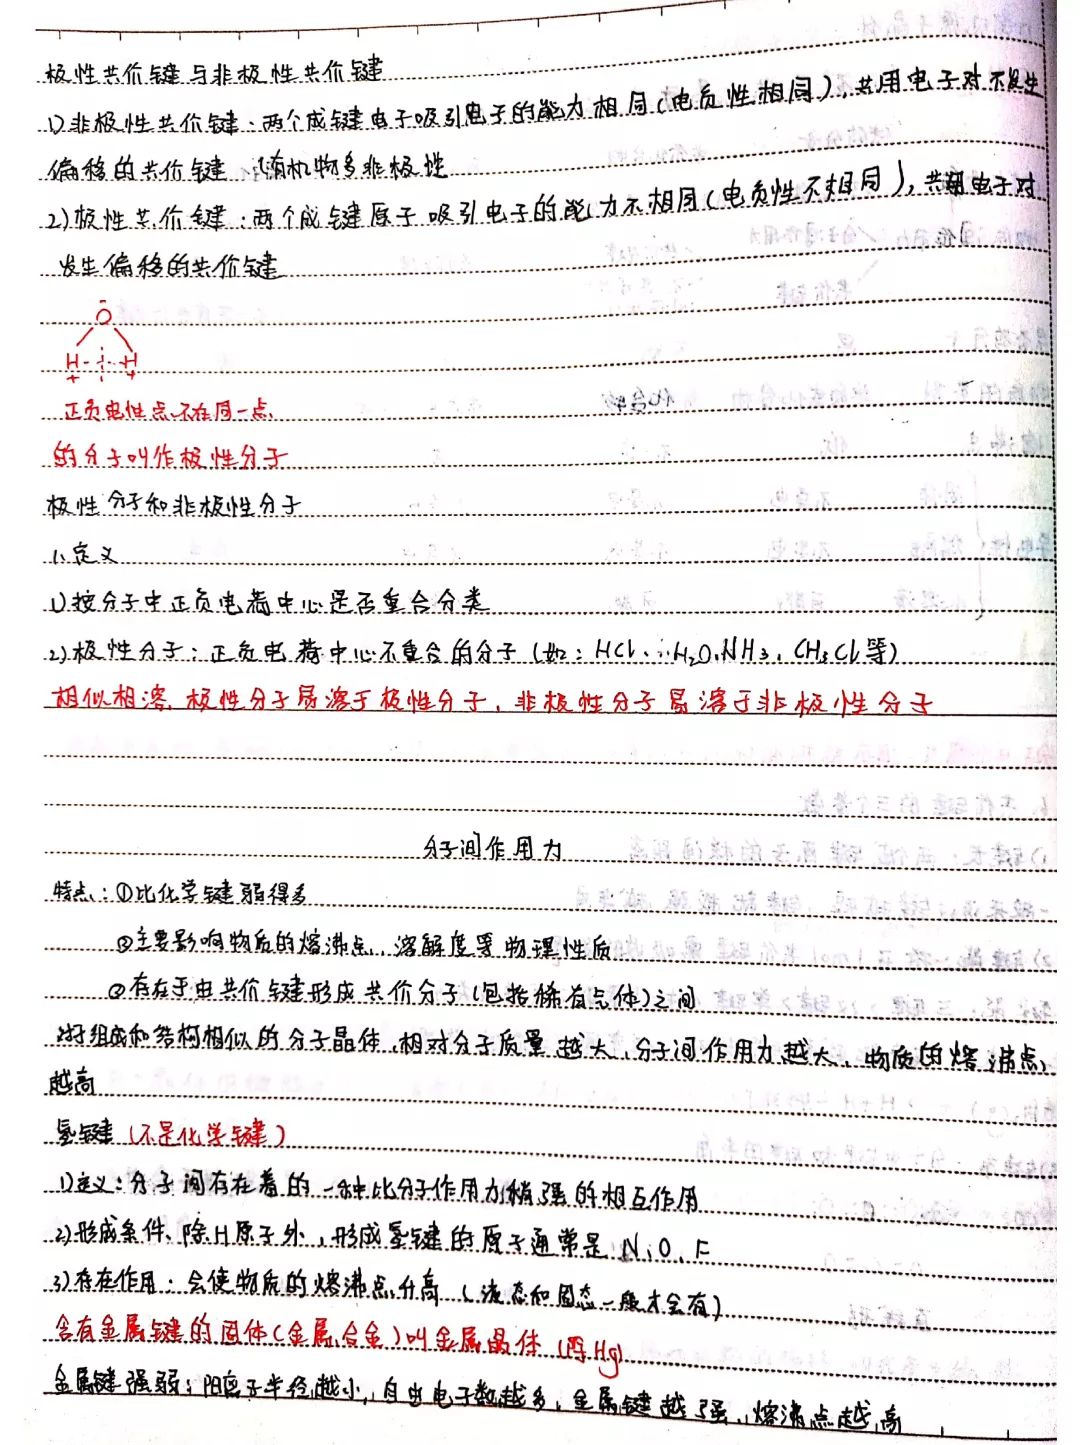 极性共价键与非极性共价键
1)非极性共价键：两个成键电子吸引电子的能力相同(电负性相同)，共用电子对不发生
偏移的共价键 有机物多非极性
2)极性共价键：两个成键原子吸引电子的能力不相同(电负性不相同)，共用电子对
发生偏移的共价键
-
O
H H
+ +
正负电性点不在同一点
的分子叫作极性分子
极性分子和非极性分子
1、定义
1)按分子中正负电荷中心是否重合分类
2)极性分子：正负电荷中心不重合的分子(如：HCl、H₂O、NH₃、CH₃Cl等)
相似相溶 极性分子易溶于极性分子，非极性分子易溶于非极性分子
分子间作用力
特点：①比化学键弱得多
②主要影响物质的熔沸点、溶解度等物理性质
②存在于由共价键形成共价分子(包括稀有气体)之间
对于组成和结构相似的分子晶体，相对分子质量越大，分子间作用力越大，物质的熔沸点
越高
氢键(不是化学键)
1)定义：分子间存在着的一种比分子作用力稍强的相互作用
2)形成条件、除H原子外，形成氢键的原子通常是N、O、F
3)存在作用：会使物质的熔沸点升高(液态和固态一般才会有)
含有金属键的固体(金属、合金)叫金属晶体(除Hg)
金属键强弱：阳离子半径越小，自由电子数越多，金属键越强，熔沸点越高